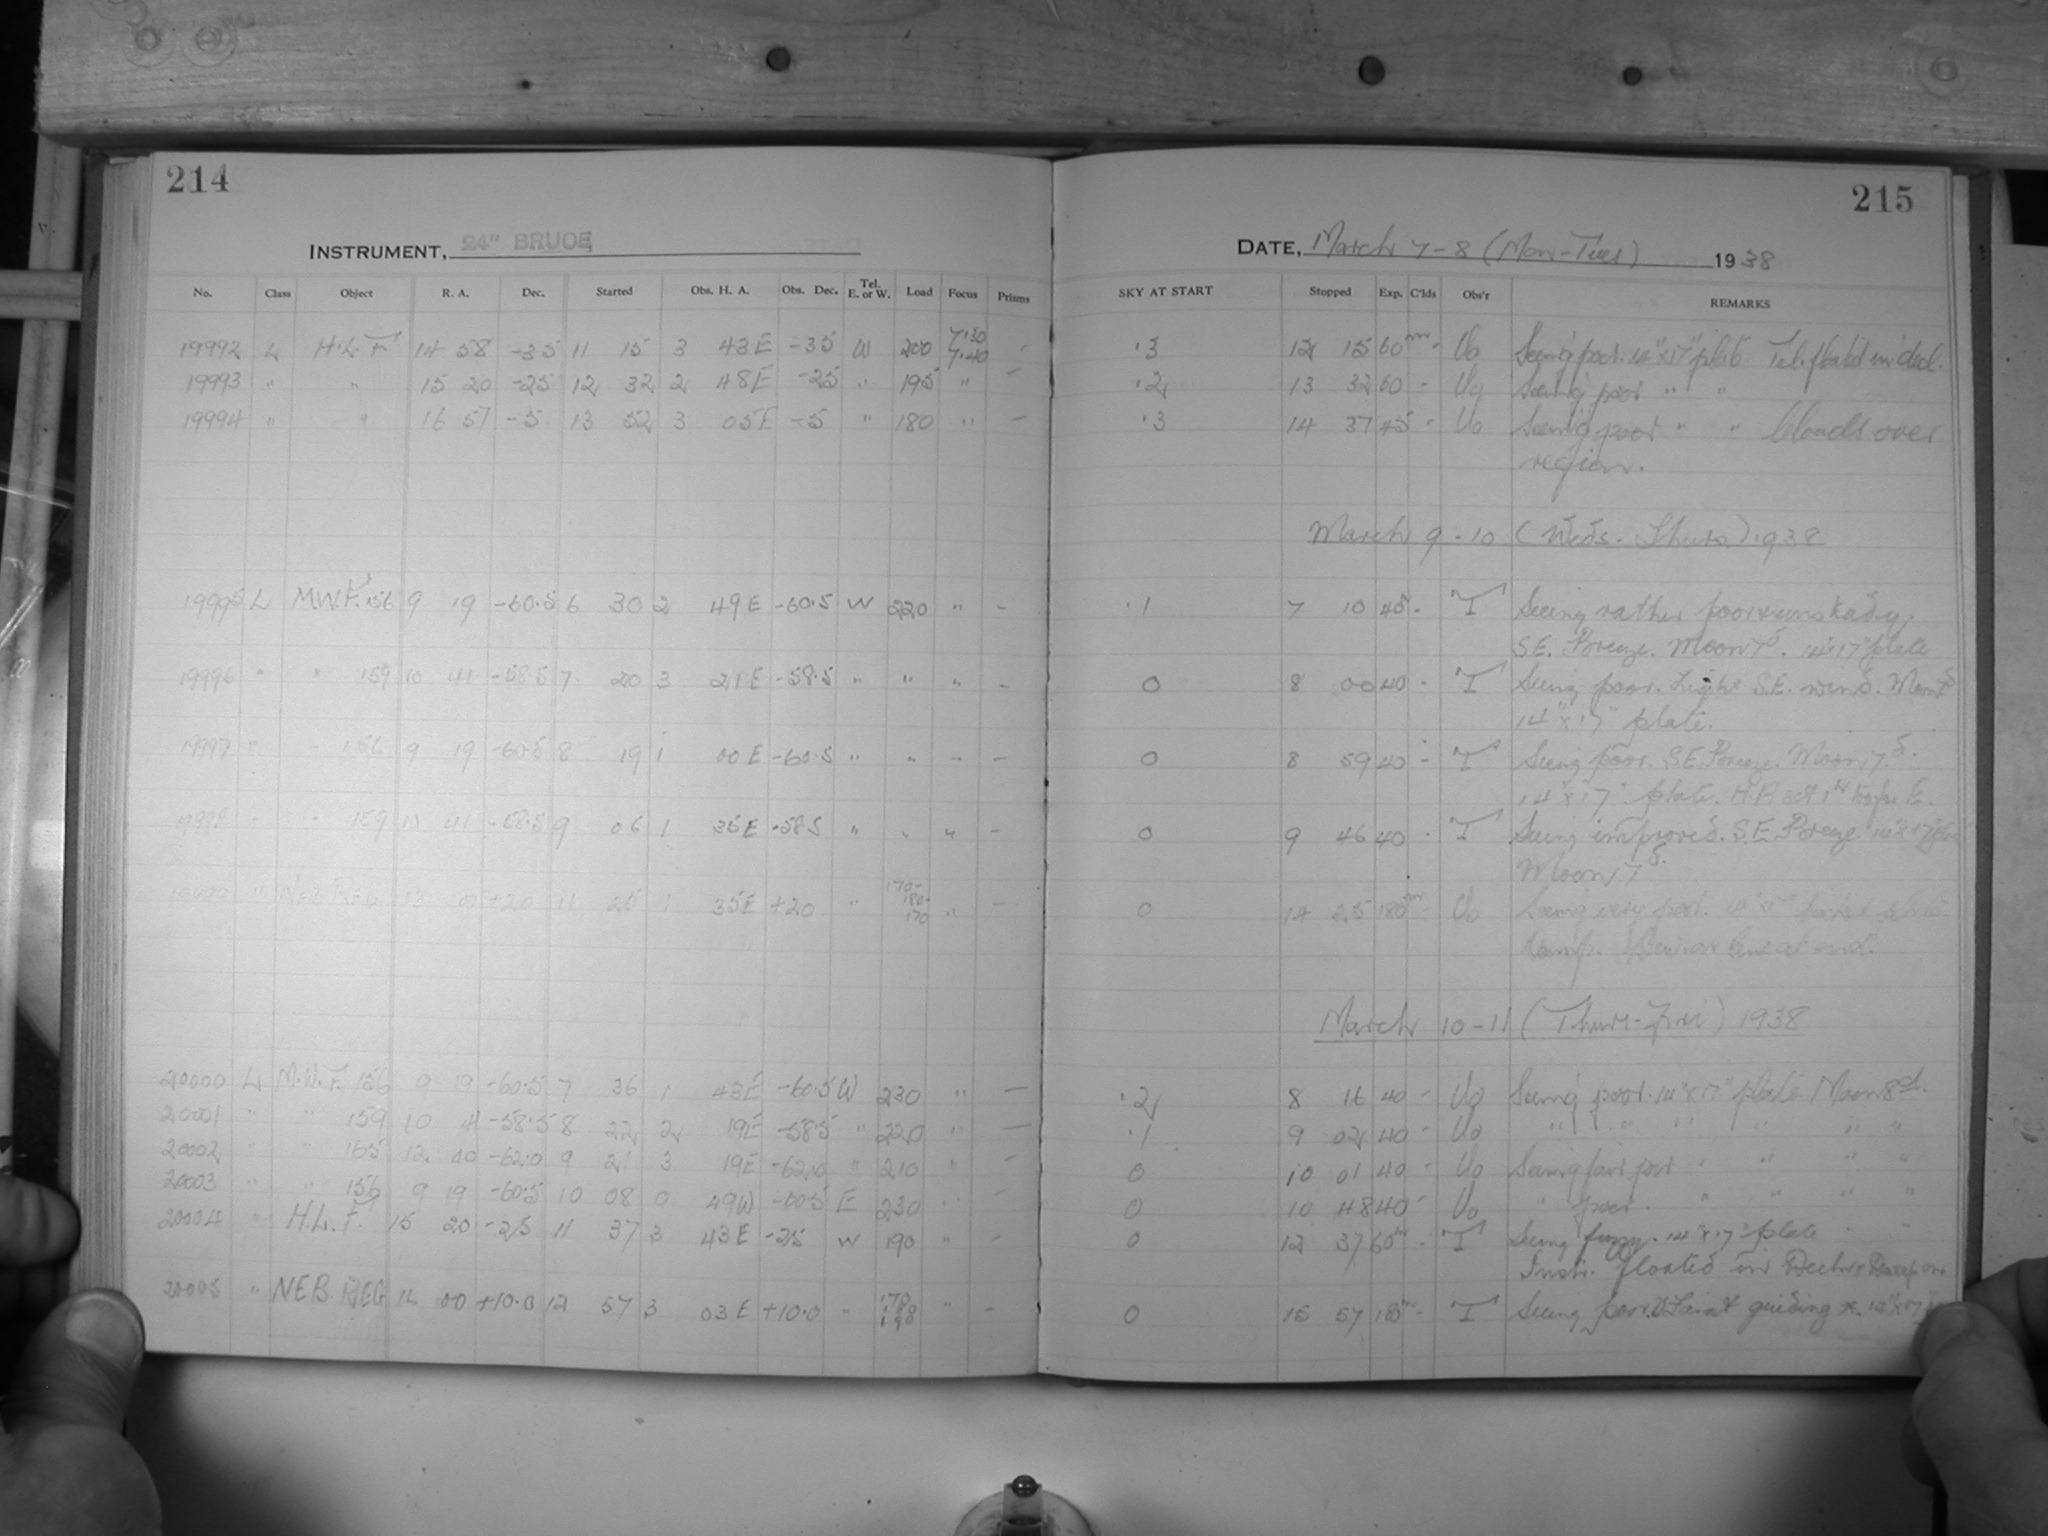 214
215
INSTRUMENT, 24" BRUCE
DATE, March 7-8 (Mon-Tues) 1938
No. Class Object R. A. Dec. Started Obs. H. A. Obs. Dec. Tel. E. or W. Load Focus Prisms SKY AT START Stopped Exp. C'lds Obs'r REMARKS
7.30
19992 L H.L.F. 14 58 -35 11 15 3 43E -35 W 200 7.40 - .3 12 15 60 - Uo Seeing poor. 14"x17" plate Tel. floated in decl.
19993 " " 15 20 -25 12 32 2 48E -25 " 195 " - .2 13 32 60 - Uo Seeing poor " "
19994 " " 16 57 -5 13 52 3 05E -5 " 180 " - .3 14 37 45 - Uo Seeing poor " " Clouds over
region.
March 9-10 (Weds.-Thurs.) 1938
19995 L M.W.F. 156 9 19 -60.5 6 30 2 49E -60.5 W 220 " - .1 7 10 45 - T Seeing rather poor & unsteady,
S.E. Breeze. Moon 7d. 14"x17" plate
19996 " " 159 10 41 -58.5 7 20 3 21E -58.5 " " " - 0 8 00 40 - T Seeing poor. Light S.E. wind. Moon 7d
14"x17" plate.
19997 " " 156 9 19 -60.5 8 19 1 00E -60.5 " " " - 0 8 59 40 - T Seeing poor. S.E. Breeze. Moon 7d.
14"x17" plate. H.A set 1hr too far E.
19998 " " 159 10 41 -58.5 9 06 1 35E -58.5 " " " - 0 9 46 40 - T Seeing improved. S.E. Breeze. 14"x17" plate
Moon 7d.
170-
180-
19999 " NEB. REG 13 00 +20 11 25 1 35E +20 " 170 " - 0 14 25 180 - Uo Seeing very poor. 14"x17"
March 10-11 (Thurs-Fri) 1938
20000 L M.W.F. 156 9 19 -60.5 7 36 1 43E -60.5 W 230 " - .2 8 16 40 - Uo Seeing poor. 14"x17" plate Moon 8d.
20001 " " 159 10 41 -58.5 8 22 2 19E -58.5 " 220 " - .1 9 02 40 - Uo " " " " " " "
20002 " " 165 12 40 -62.0 9 21 3 19E -62.0 " 210 " - 0 10 01 40 - Uo Seeing fair poor " " " "
20003 " " 156 9 19 -60.5 10 08 0 49W -60.5 E 230 " - 0 10 48 40 - Uo " poor. " " " "
20004 " H.L.F. 15 20 -25 11 37 3 43E -25 W 190 " - 0 12 37 60 - T Seeing fuzzy. 14"x17" plate " "
Instr. floated in Decl.
170
180
20005 " NEB. REG 00 +10.0 12 57 3 03E +10.0 " 190 " - 0 15 57 180 - T Seeing poor. Faint guiding *. 14"x17"